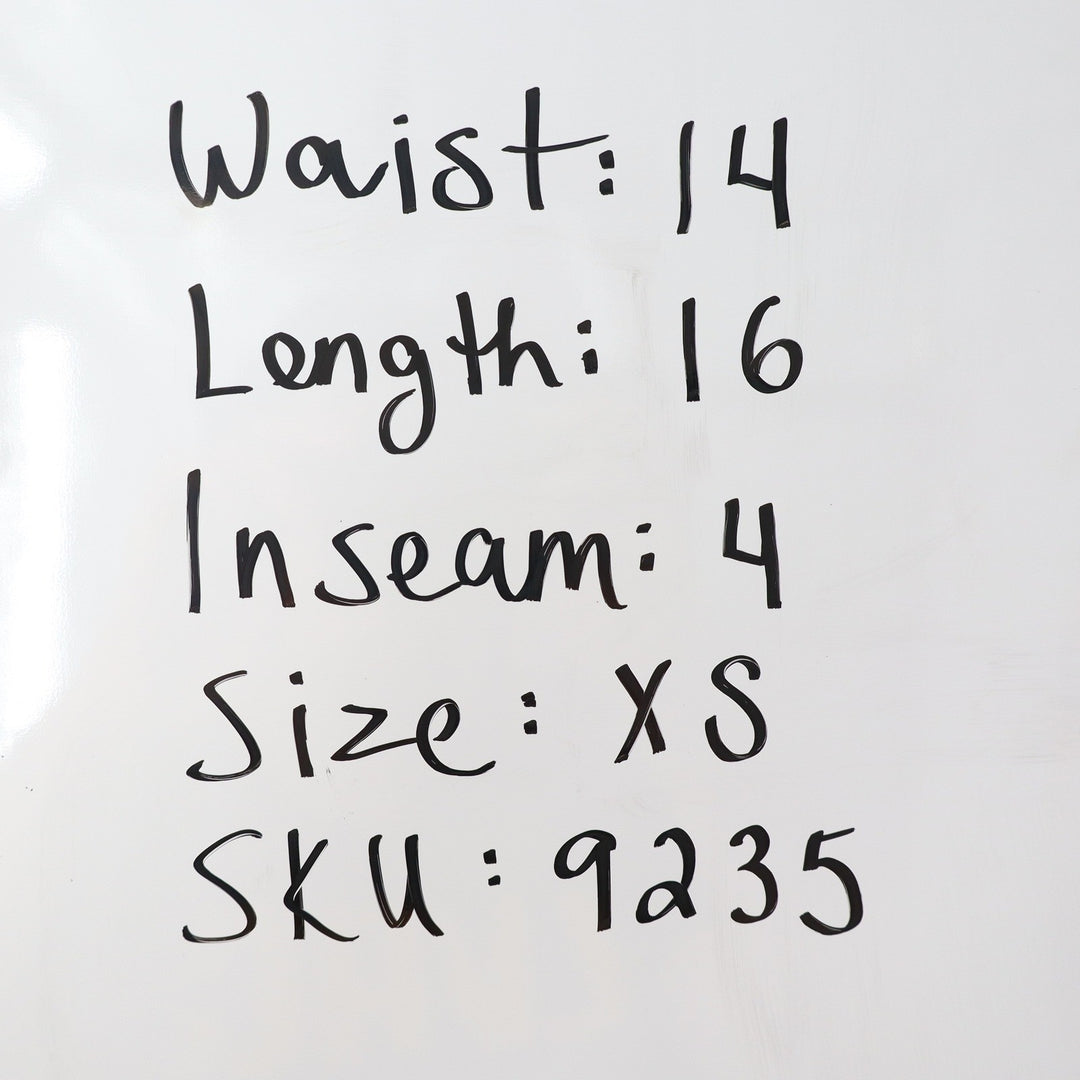 Waist: 14
Length: 16
Inseam: 4
Size: XS
SKU: 9235